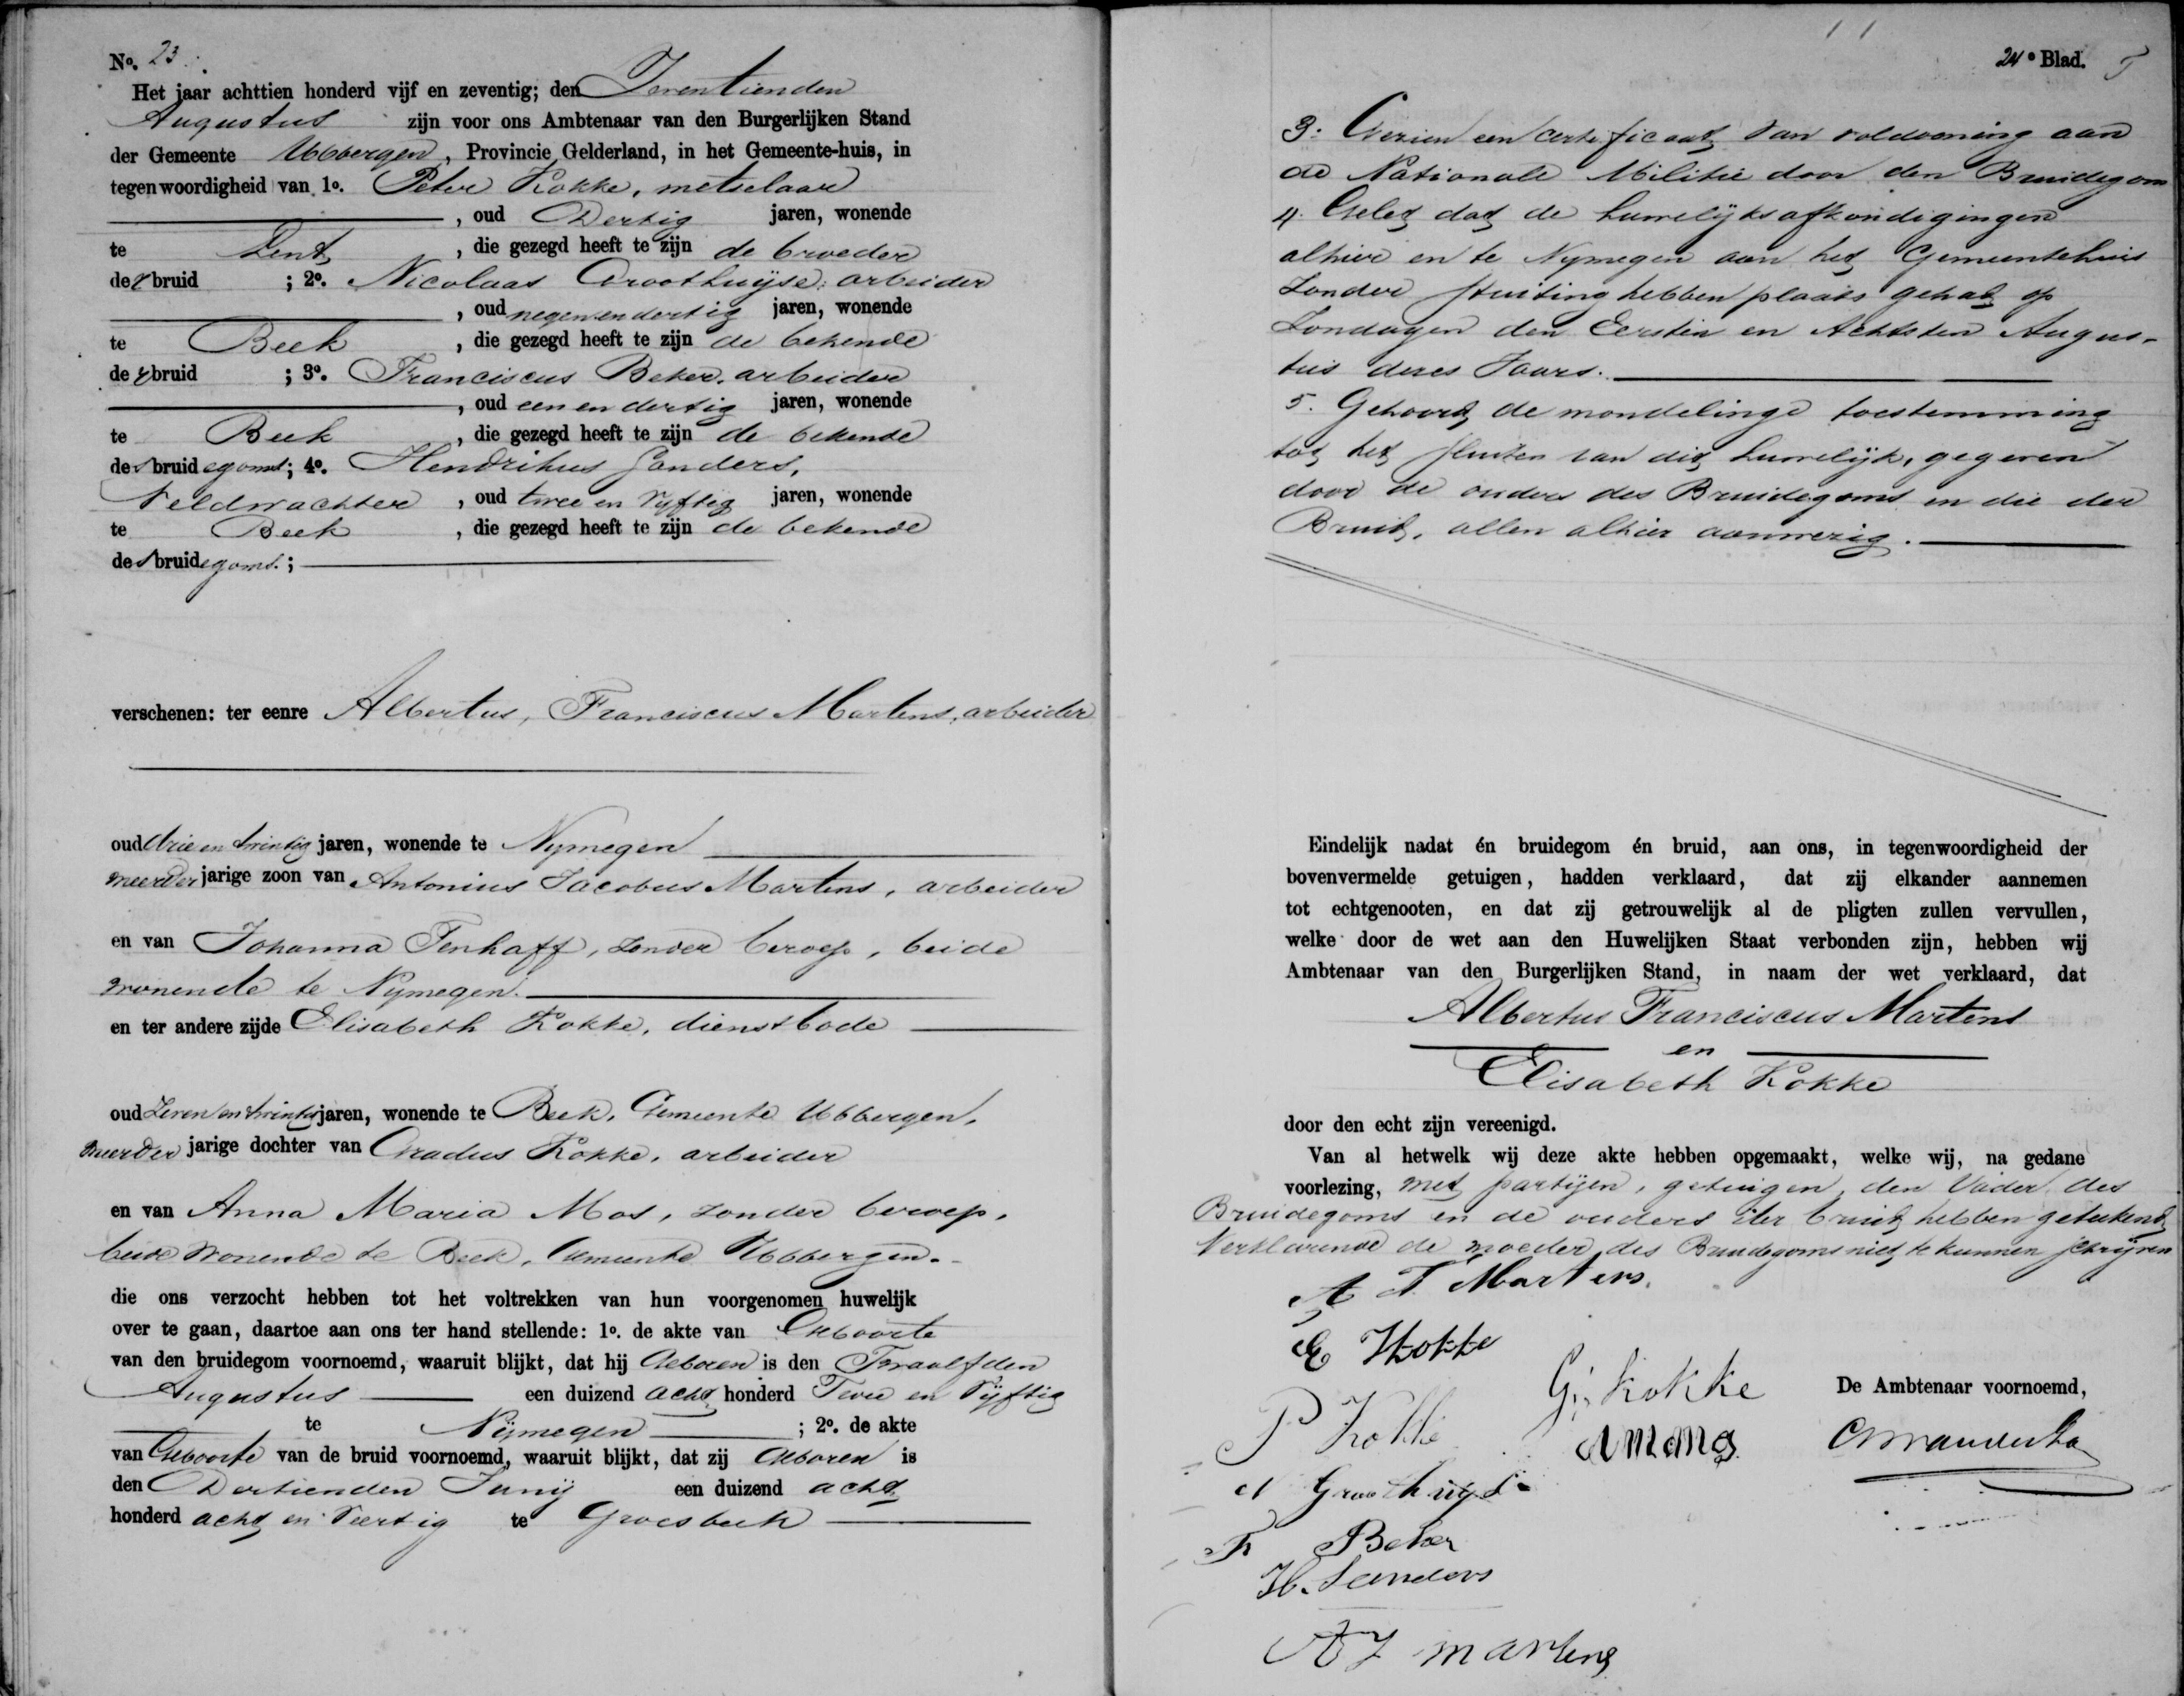 No. 23.
Het jaar achttien honderd vijf en zeventig; den Zeventienden
Augustus zijn voor ons Ambtenaar van den Burgerlijken Stand
der Gemeente Ubbergen, Provincie Gelderland, in het Gemeente-huis, in
tegenwoordigheid van 1o. Peter Kokke, metselaar
, oud Dertig jaren, wonende
te Lent, die gezegd heeft te zijn de broeder
der bruid ; 2o. Nicolaas Groothuijse, arbeider
, oud negen en dertig jaren, wonende
te Beek, die gezegd heeft te zijn de bekende
der bruid ; 3o. Franciscus Beker, arbeider
, oud een en dertig jaren, wonende
te Beek, die gezegd heeft te zijn de bekende
des bruidegoms; 4o. Hendrikus Sanders,
Veldwachter, oud twee en vyftig jaren, wonende
te Beek, die gezegd heeft te zijn de bekende
des bruidegoms.;
verschenen: ter eenre Albertus, Franciscus Martens, arbeider
oud drie en twintig jaren, wonende te Nymegen
meerder jarige zoon van Antonius Jacobus Martens, arbeider
en van Johanna Tenhaff, zonder beroep, beide
wonende te Nymegen.
en ter andere zijde Elisabeth Kokke, dienstbode
oud Zeven en twintig jaren, wonende te Beek, Gemeente Ubbergen,
meerder jarige dochter van Gradus Kokke, arbeider
en van Anna Maria Mos, zonder beroep,
beide wonende te Beek, Gemeente Ubbergen.
die ons verzocht hebben tot het voltrekken van hun voorgenomen huwelijk
over te gaan, daartoe aan ons ter hand stellende: 1o. de akte van Geboorte
van den bruidegom voornoemd, waaruit blijkt, dat hij Geboren is den Twaalfden
Augustus een duizend acht honderd Twee en Vyftig
te Nijmegen ; 2o. de akte
van Geboorte van de bruid voornoemd, waaruit blijkt, dat zij Geboren is
den Dertienden Junij een duizend acht
honderd acht en veertig te Groesbeek
24e Blad.
3. Gezien een certificaat van voldoening aan
de Nationale Militie door den Bruidegom
4. Gelet dat de huwelijksafkondigingen
alhier en te Nymegen aan het Gemeentehuis
Zonder stuiting hebben plaats gehad op
Zondagen den Eersten en Achtsten Augus-
tus dezes Jaars.
5. Gehoord de mondelinge toestemming
tot het sluiten van dit huwelijk, gegeven
door de ouders des Bruidegoms en die der
Bruid, allen alhier aanwezig.
Eindelijk nadat én bruidegom én bruid, aan ons, in tegenwoordigheid der
bovenvermelde getuigen, hadden verklaard, dat zij elkander aannemen
tot echtgenooten, en dat zij getrouwelijk al de pligten zullen vervullen,
welke door de wet aan den Huwelijken Staat verbonden zijn, hebben wij
Ambtenaar van den Burgerlijken Stand, in naam der wet verklaard, dat
Albertus Franciscus Martens
en
Elisabeth Kokke
door den echt zijn vereenigd.
Van al hetwelk wij deze akte hebben opgemaakt, welke wij, na gedane
voorlezing, met partijen, getuigen, den Vader des
Bruidegoms en de ouders der bruid hebben getekend
Verklarende de moeder des Bruidegoms niet te kunnen schrijven
A F Martens
E Kokke
G, Kokke
De Ambtenaar voornoemd,
P Kokke
AM Mos
N Groothuyse
F Beker
H. Sanders
A J martens